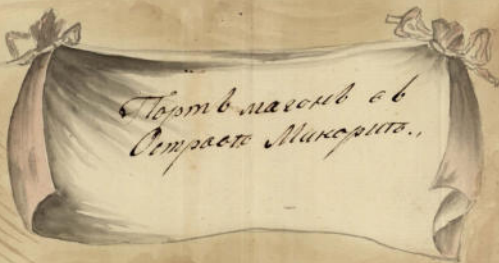 Портъ магонъ въ
Островѣ Миноркѣ.,